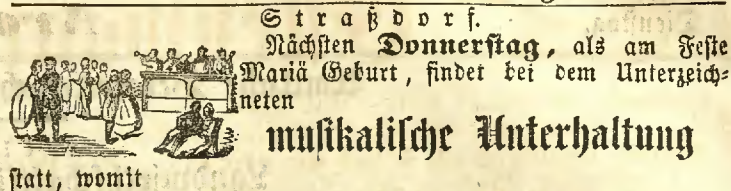 Straßdorf.
Nächsten Donnerstag, als am Feste
Mariä Geburt, findet bei dem Unterzeich-
neten
musikalische Unterhaltung
statt, womit